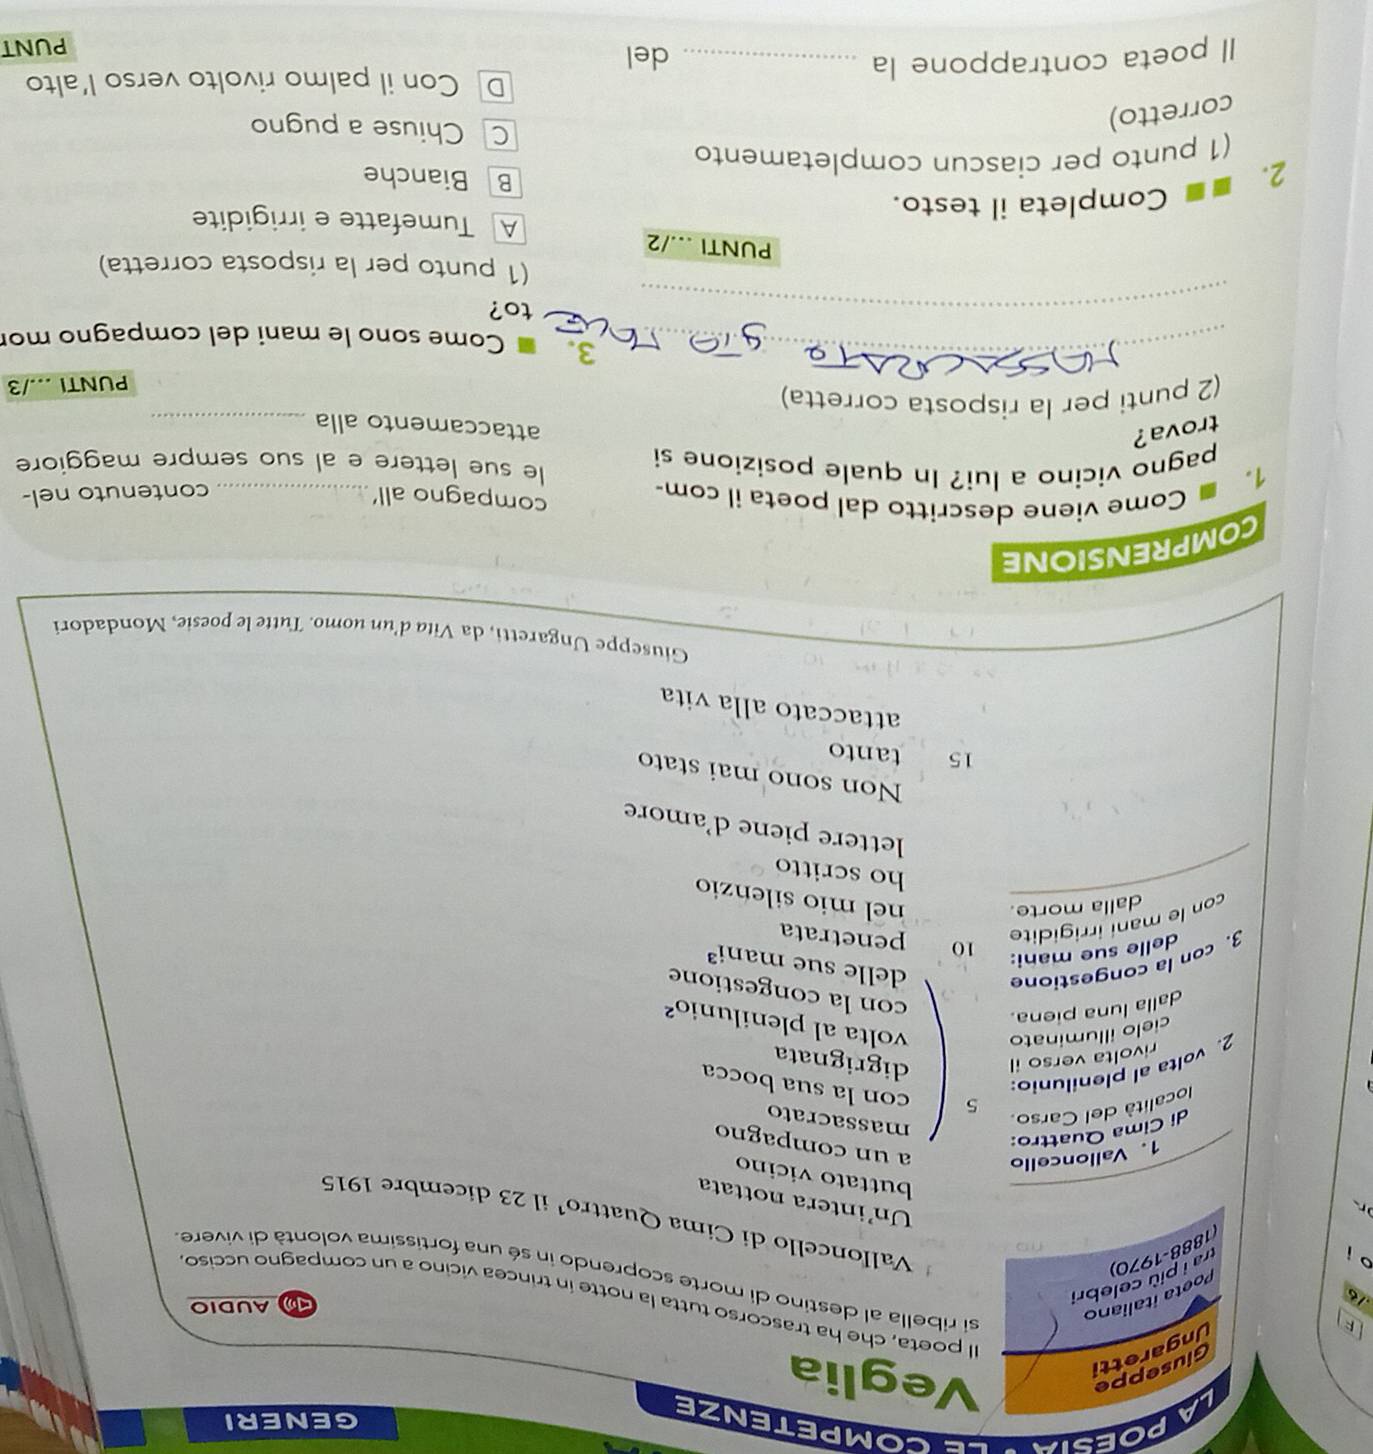 LA POESIA • LE COMPETENZE
GENERI
Giuseppe
Ungaretti
Poeta italiano
tra i più celebri
(1888-1970)
Veglia
AUDIO
Il poeta, che ha trascorso tutta la notte in trincea vicino a un compagno ucciso,
si ribella al destino di morte scoprendo in sé una fortissima volontà di vivere.
Valloncello di Cima Quattro¹ il 23 dicembre 1915
Un'intera nottata
buttato vicino
a un compagno
massacrato
5 con la sua bocca
digrignata
volta al plenilunio²
con la congestione
delle sue mani³
10 penetrata
nel mio silenzio
ho scritto
lettere piene d'amore
Non sono mai stato
15 tanto
attaccato alla vita
Giuseppe Ungaretti, da Vita d'un uomo. Tutte le poesie, Mondadori
1. Valloncello
di Cima Quattro:
località del Carso.
2. volta al plenilunio:
rivolta verso il
cielo illuminato
dalla luna piena.
3. con la congestione
delle sue mani:
con le mani irrigidite
dalla morte.
COMPRENSIONE
1. Come viene descritto dal poeta il com-
pagno vicino a lui? In quale posizione si
trova?
(2 punti per la risposta corretta)
MASSACRATO già
PUNTI .../2
2. Completa il testo.
(1 punto per ciascun completamento
corretto)
Il poeta contrappone la .................... del
compagno all'.................... contenuto nel-
le sue lettere e al suo sempre maggiore
attaccamento alla ....................
PUNTI .../3
3. Come sono le mani del compagno mor
to?
(1 punto per la risposta corretta)
A Tumefatte e irrigidite
B Bianche
C Chiuse a pugno
D Con il palmo rivolto verso l'alto
PUNT
F
./6